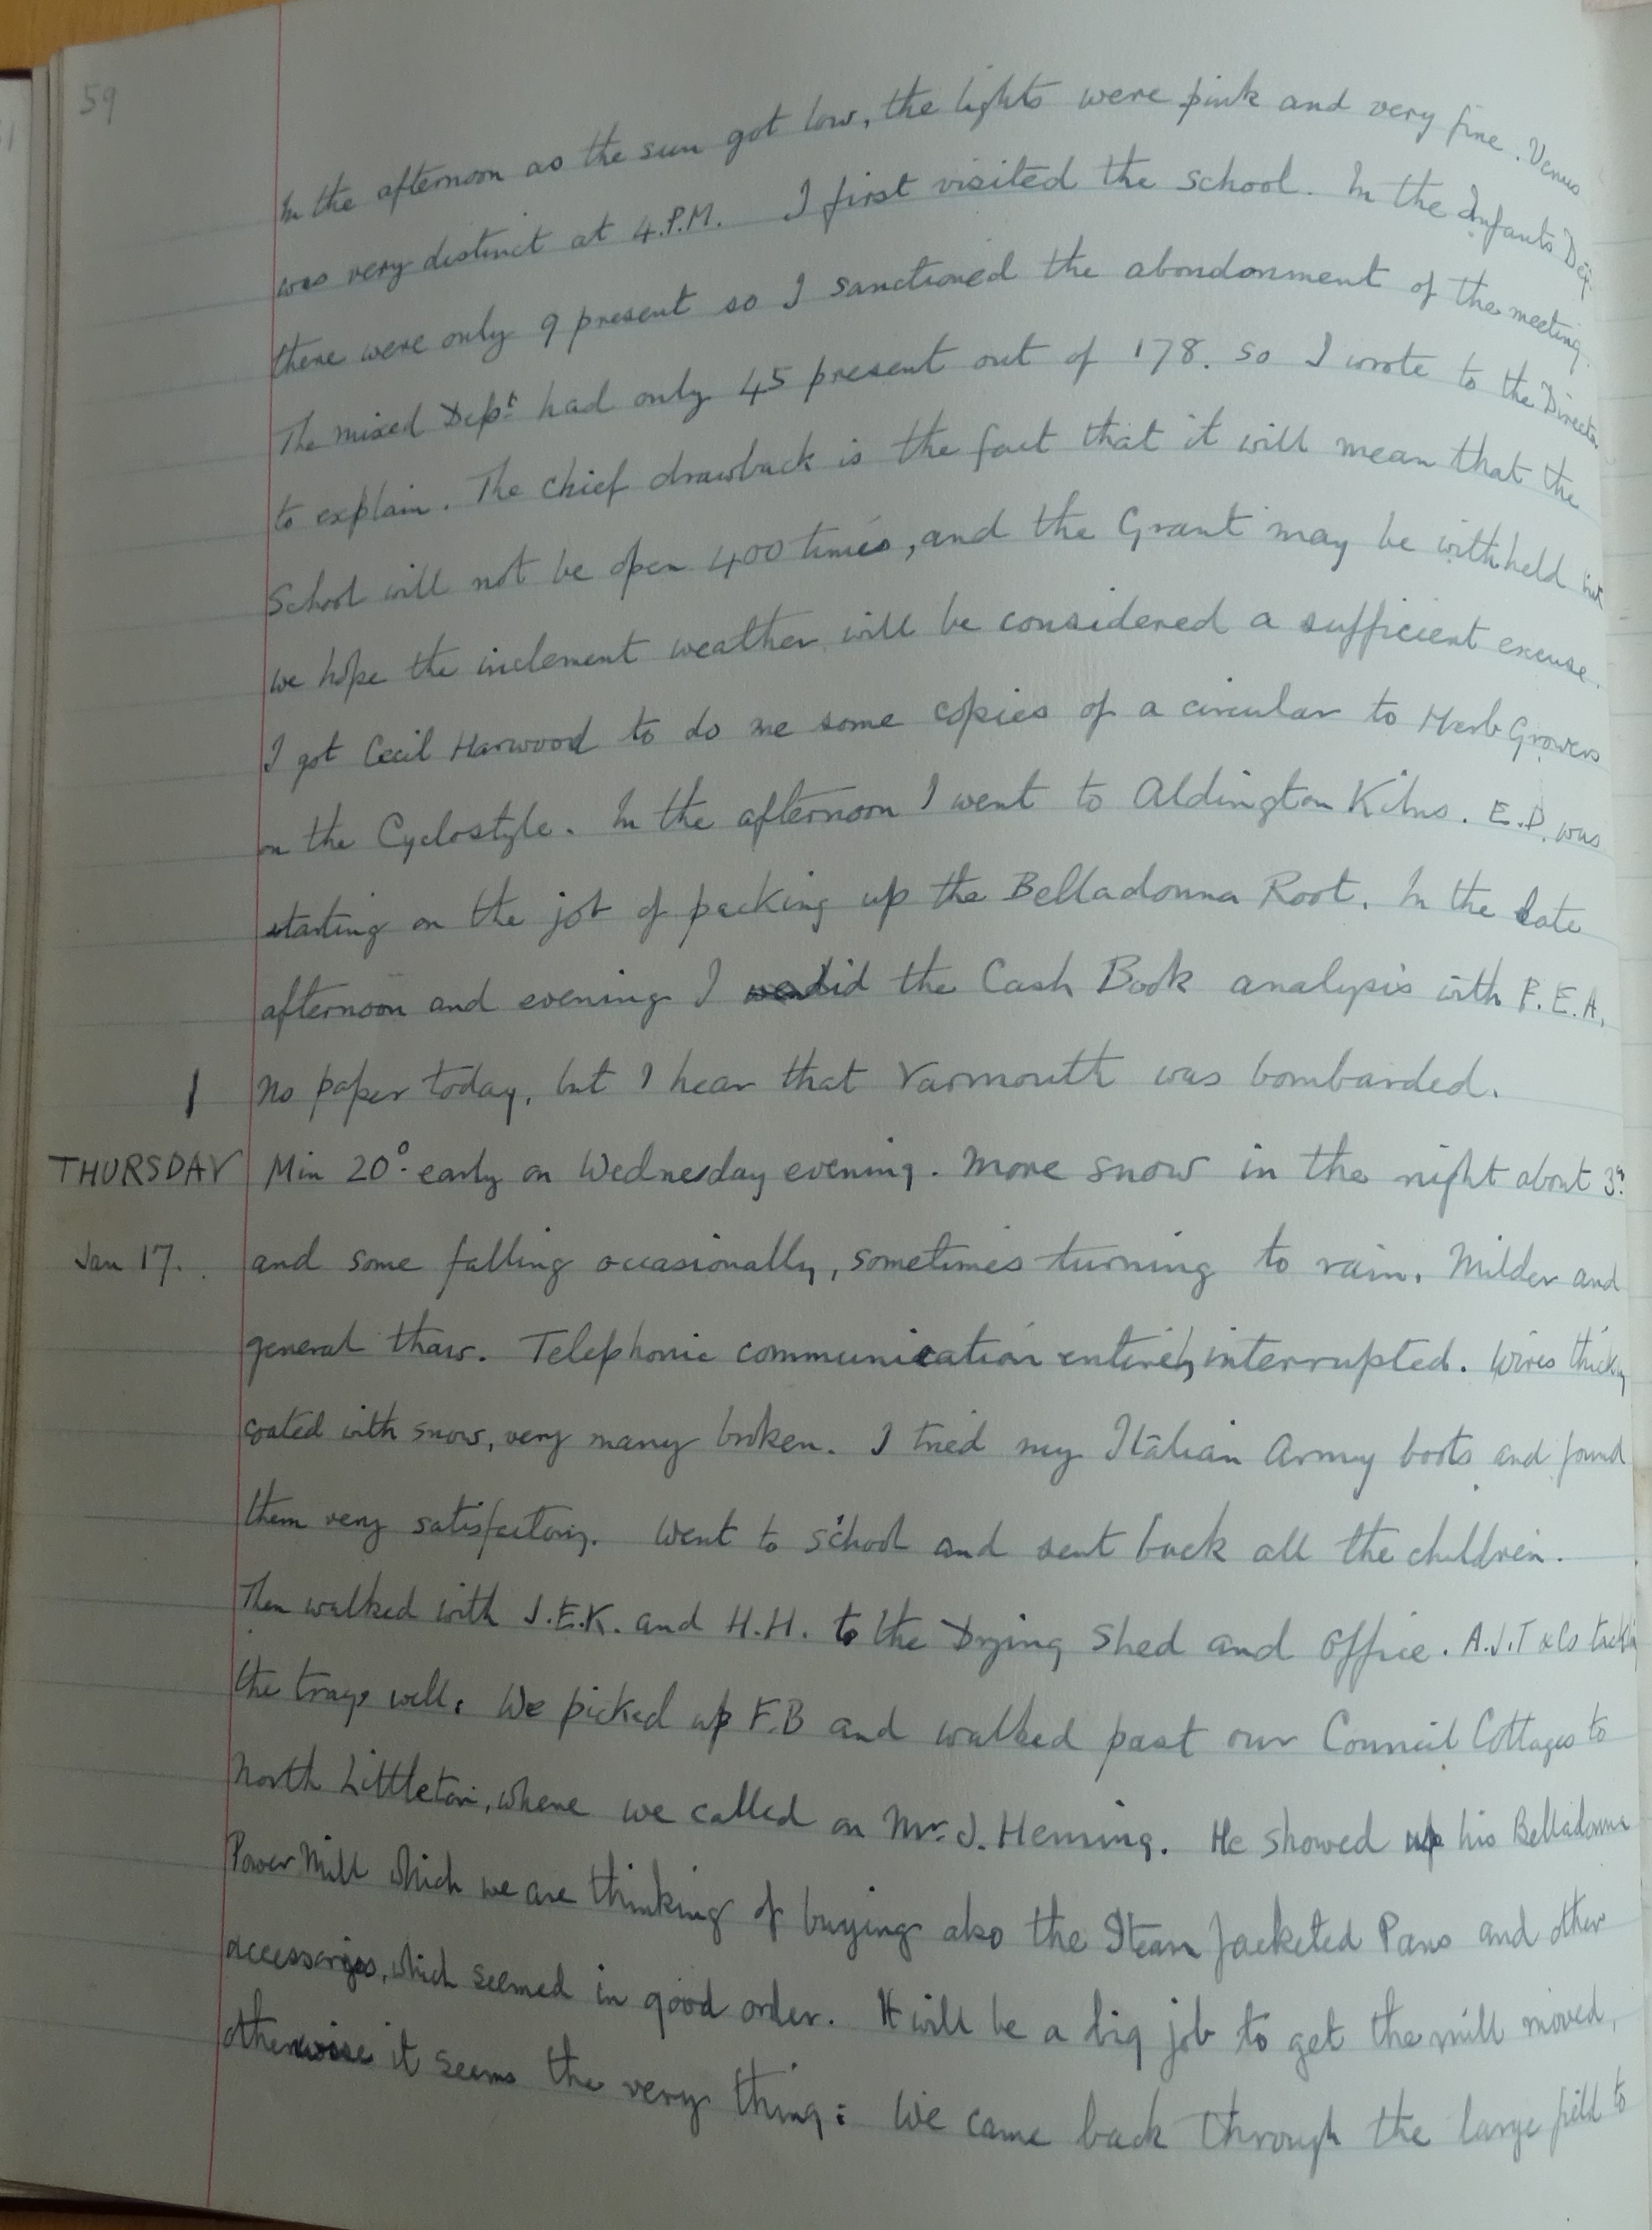 59
In the afternoon as the sun got low, the lights were pink and very fine. Venus
was very distinct at 4.P.M. I first visited the school. In the Infants Dep.
there were only 9 present so I sanctioned the abandonment of the meeting.
The mixed Dept. had only 45 present out of 178. so I wrote to the Director
to explain. The chief drawback is the fact that it will mean that the
School will not be open 400 times, and the Grant may be withheld but
we hope the inclement weather will be considered a sufficient excuse.
I got Cecil Harwood to do me some copies of a circular to Herb Growers
on the Cyclostyle. In the afternoon I went to Aldington Kilns. E.D. was
starting on the job of packing up the Belladonna Root. In the late
afternoon and evening I did the Cash Book analysis with F.E.A.
No paper today, but I hear that Yarmouth was bombarded.
THURSDAY Min 20° early on Wednesday evening. More snow in the night about 3"
Jan 17. and some falling occasionally, sometimes turning to rain. Milder and
general thaw. Telephonic communication entirely interrupted. Wires thickly
coated with snow, very many broken. I tried my Italian Army boots and found
them very satisfactory. Went to school and sent back all the children.
Then walked with J.E.K. and H.H. to the Drying Shed and Office. A.J.T & Co
the trays well. We picked up F.B and walked past our Council Cottages to
North Littleton, where we called on Mr. J. Heming. He showed us his Belladonna
Power Mill which we are thinking of buying also the Steam Jacketed Pans and other
accessories, which seemed in good order. It will be a big job to get the mill moved,
otherwise it seems the very thing: We came back through the large field to